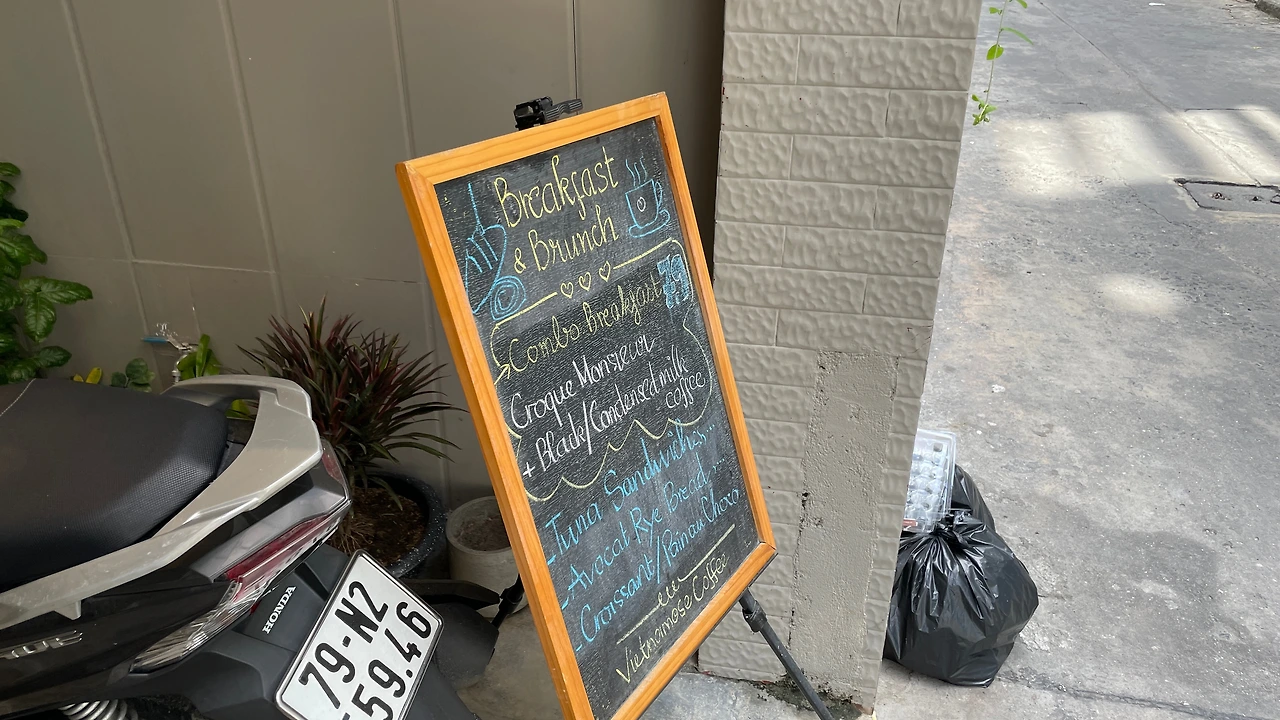 Breakfast
& Brunch
Combo Breakfast 79
Croque Monsieur
+ Black/Condensed milk
coffee
- Tuna Sandwichs...
- Avocat Rye Bread...
- Croissant/Pain au Choco
Vietnamose Coffee
HONDA
79-N2
59.46